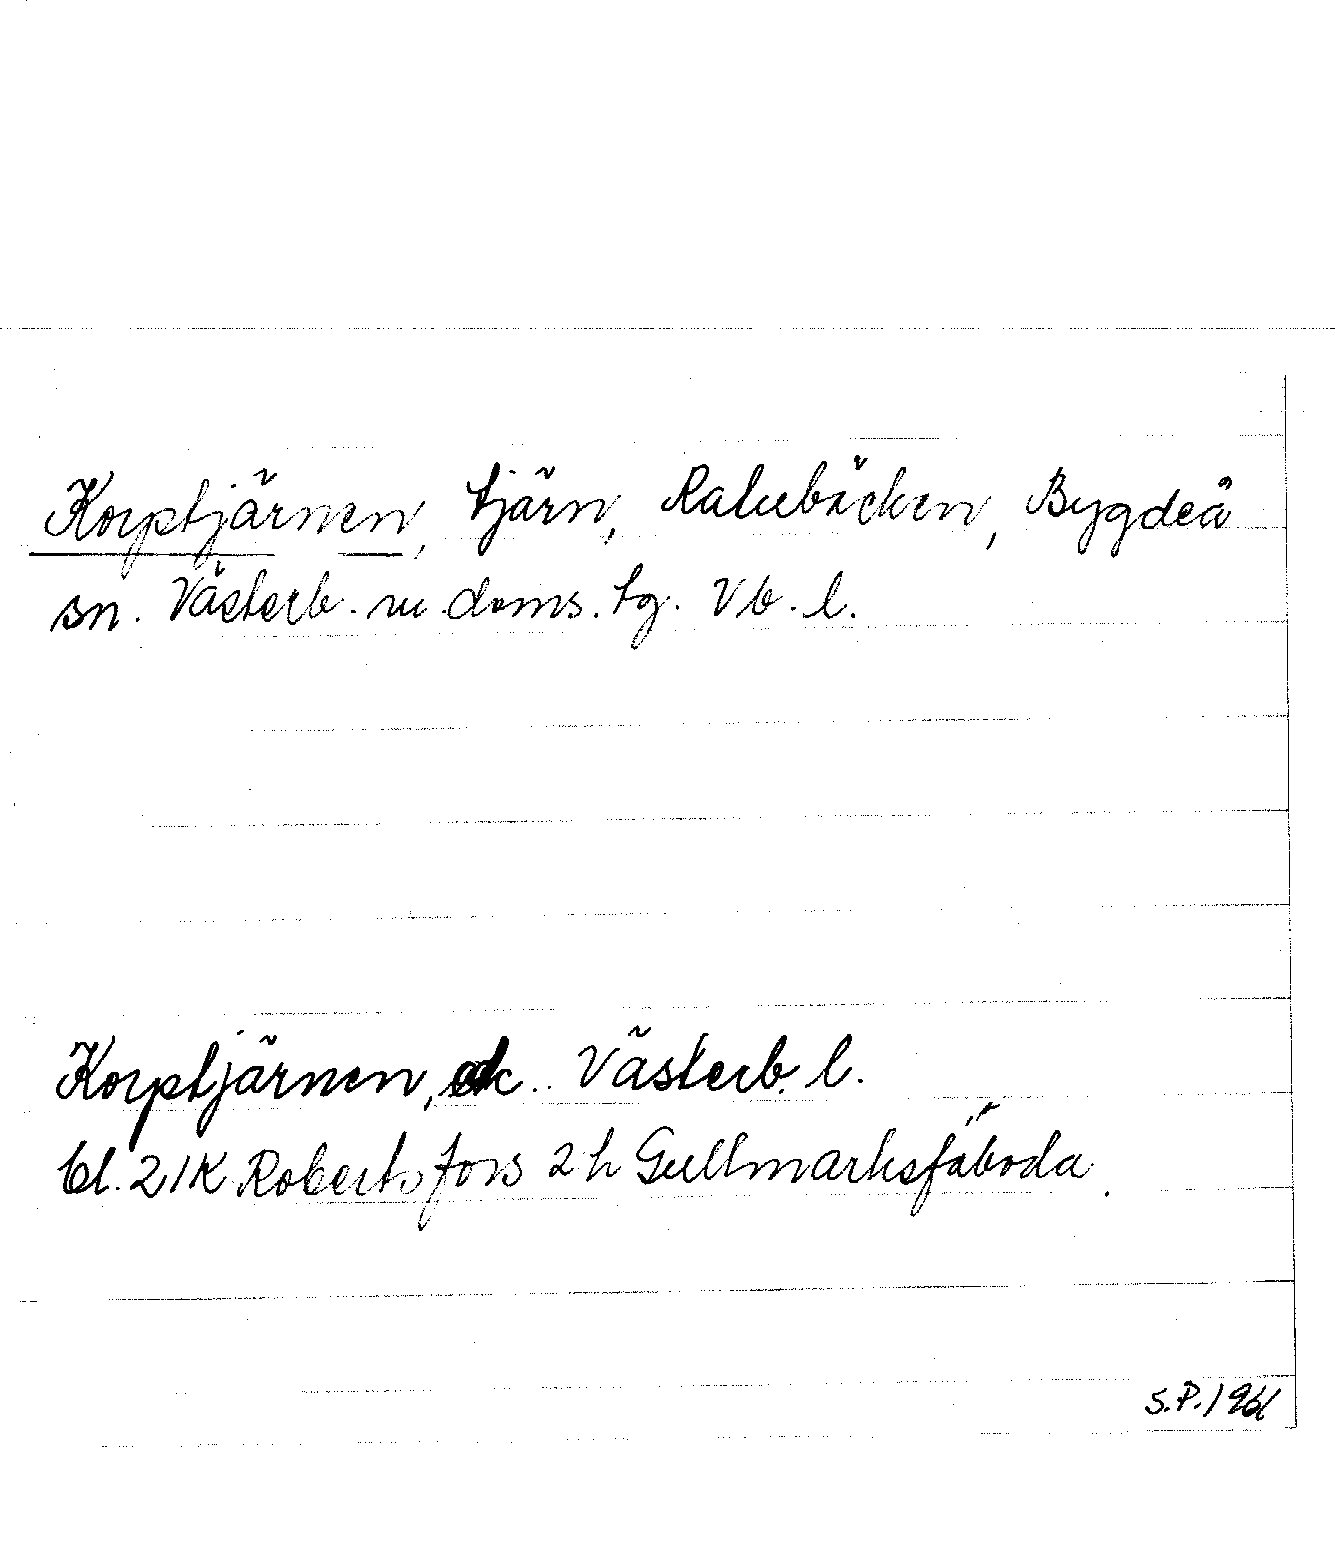 Korptjärnen, tjärn, Ratubäcken, Bygdeå
sn. Västerb. m. doms. tg. Vb. l.
Korptjärnen, ek.. Västerb. l.
bl. 21K Robertsfors 2h Gullmarksfäboda.
S.P. 1961